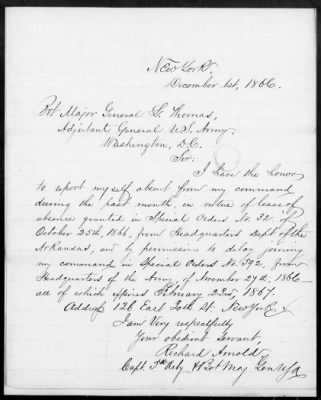 New York,
December 1st, 1866.
Bvt Major General L. Thomas,
Adjutant General U.S. Army.
Washington, D.C.
Sir:
I have the honor
to report myself absent from my command
during the past month, in virtue of leave of
absence granted in Special Orders No. 32. of
October 25th, 1866, from Headquarters Dept of the
Arkansas, and by permission to delay joining
my command in Special Orders No. 592, from
Headquarters of the Army, of November 27th, 1866—
all of which expires February 23rd, 1867.
Address 126 East 30th St. New York
I am Very respectfully
Your obedient servant,
Richard Arnold
Capt. 5th Arty & Bvt Maj Gen USA